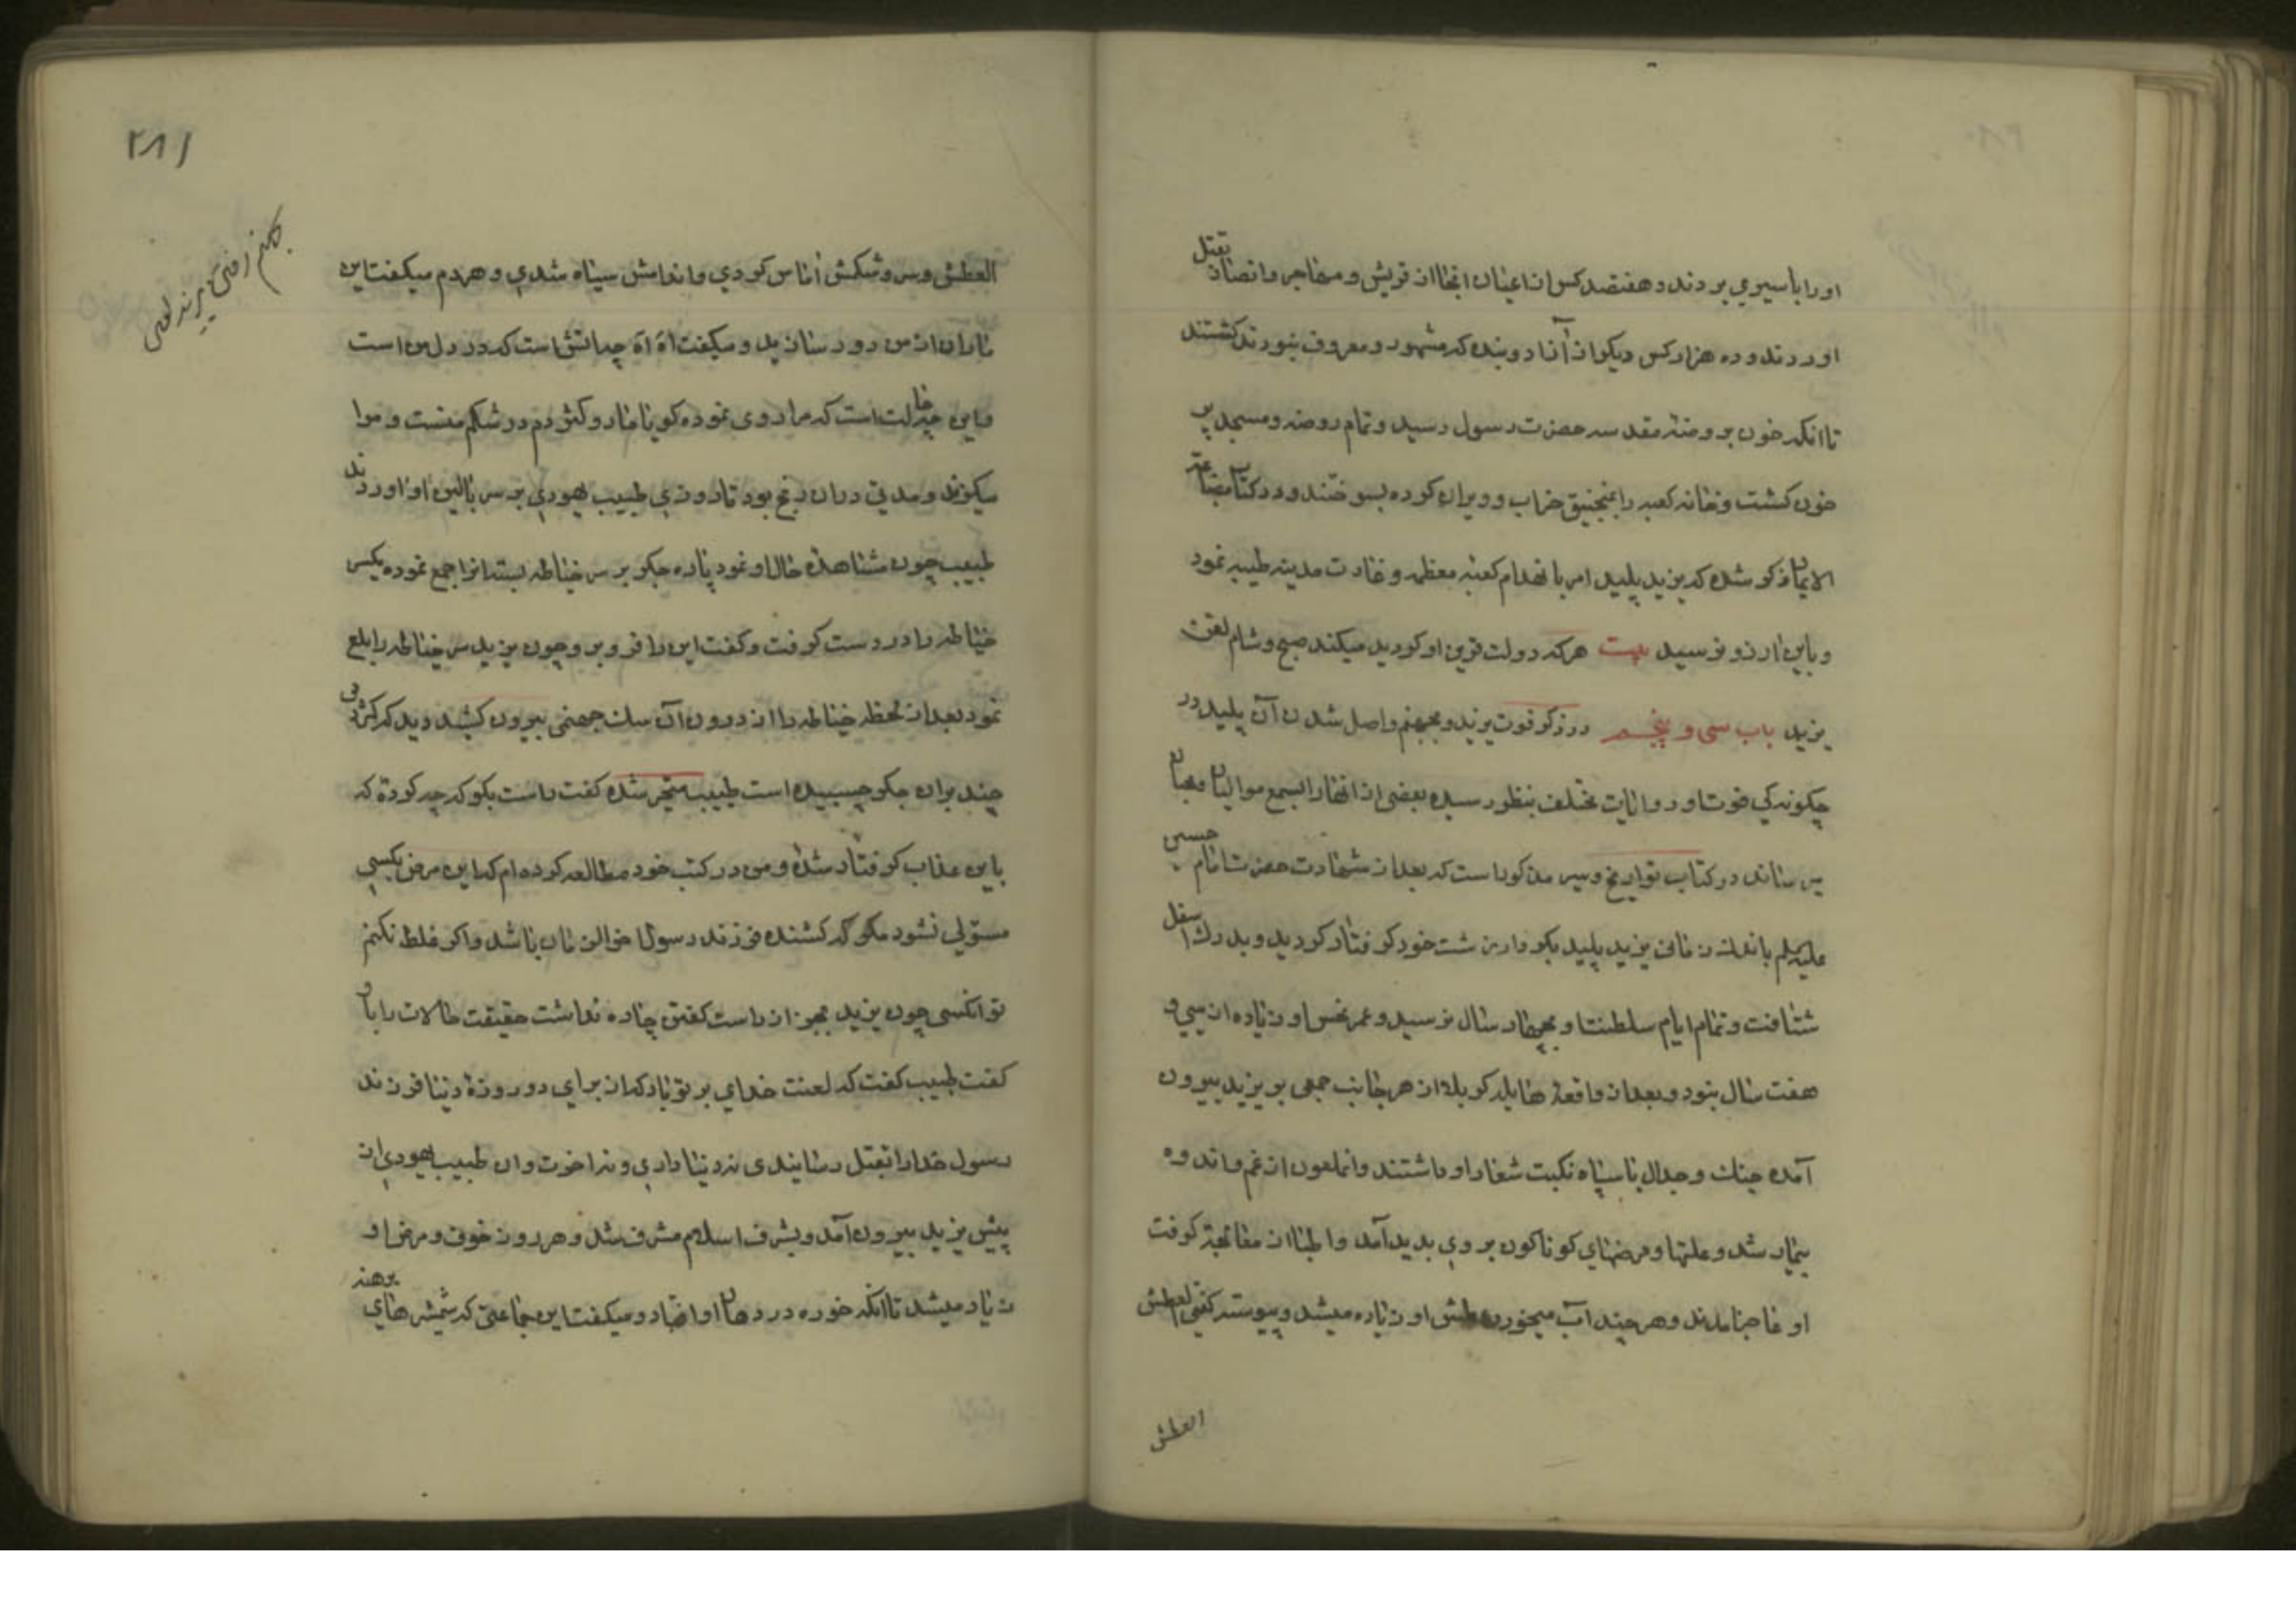 او را باسیری بردند و هفتصد کس از اعیان انجا از قریش و مهاجر و انصار بقتل
اوردند و ده هزار کس دیکر از آزاد و بنده که مشهور و معروف نبودند کشتند
تا انکه خون بروضهٔ مقدسه حضرت رسول رسید و تمام روضه و مسجد پر
خون کشت و خانه کعبه را بمنجنیق خراب و ویران کرده بسوختند و در کتاب
الایمان مذکور شده که یزید پلید امر بانهدام کعبه معظمه و غارت مدینه طیبه نمود
و باین ارزو نرسید بیت هر که دولت قرین او کردید میکند صبح و شام لعن
یزید باب سی و پنجم در ذکر فوت یزید و بجهنم واصل شدن آن پلید در
چکونه کی فوت او روایات مختلف بنظر رسیده بعضی از انها را بسمع موالیان و محبان
میرساند در کتاب تواریخ و سیر مذکور است که بعد از شهادت حضرت امام حسین
علیه السلم باندک زمانی یزید پلید بکردار زشت خود کرفتار کردید و بدرک اسفل
شتافت و تمام ایام سلطنت او بچهار سال نرسید و عمر نحس او زیاده از سی و
هفت سال نبود و بعد از واقعهٔ هایله کربلا از هر جانب جمعی بر یزید بیرون
آمده جنك و جدال با سپاه نکبت شعار او داشتند و انملعون از غم و اندوه
بیمار شد و علتها و مرضهای کوناکون بر وی بدید آمد و اطبا از معالجهٔ کوفت
او عاجز امدند و هر چند آب میخورد عطش او زیاده میشد و پیوسته کفتی العطش
العطش
۲۸۱
بجهنم رفتن یزید لعین
العطش و سر و شکمش اماس کردی و اندامش سیاه شدی و هر دم میکفت این
ماران از من دور سازید و میکفت اه اه چه اتش است که در دل من است
و این چه حالت است که مرا روی نموده کویا مار و کژدم در شکم منست و مرا
میکزند و مدتی در آن رنج بود تا روزی طبیب یهودی بر سر بالین او اوردند
طبیب چون مشاهده حال او نمود پاره جکر بر سر خیاطه بسته انرا جمع نموده یکسر
خیاطه را در دست کرفت و کفت این را فرو بر و چون یزید سر خیاطه را بلع
نمود بعد از لحظه خیاطه را از درون آن سك جهنمی بیرون کشید دید که کژدمی
چند بر ان جکر چسبیده است طبیب متحیر شده کفت راست بکو که چه کرده که
باین عذاب کرفتار شدهٔ و من در کتب خود مطالعه کرده ام که این مرض بکسی
مستولی نشود مکر که کشنده فرزند رسول اخر الزمان باشد و اکر غلط نکنم
تو انکسی چون یزید بجز از راست کفتن چاره نداشت حقیقت حالات را بان
کفت طبیب کفت که لعنت خدای بر تو باد که از برای دو روزهٔ دنیا فرزند
رسول خدا را بقتل رسانیدی نه دنیا داری و نه اخرت و ان طبیب یهودی از
پیش یزید بیرون آمد و بشرف اسلام مشرف شد و هر روز خوف و مرض او
زیاد میشد تا انکه خوره در دهان او افتاد و میکفت این جماعتی که شمشیرهای برهنه